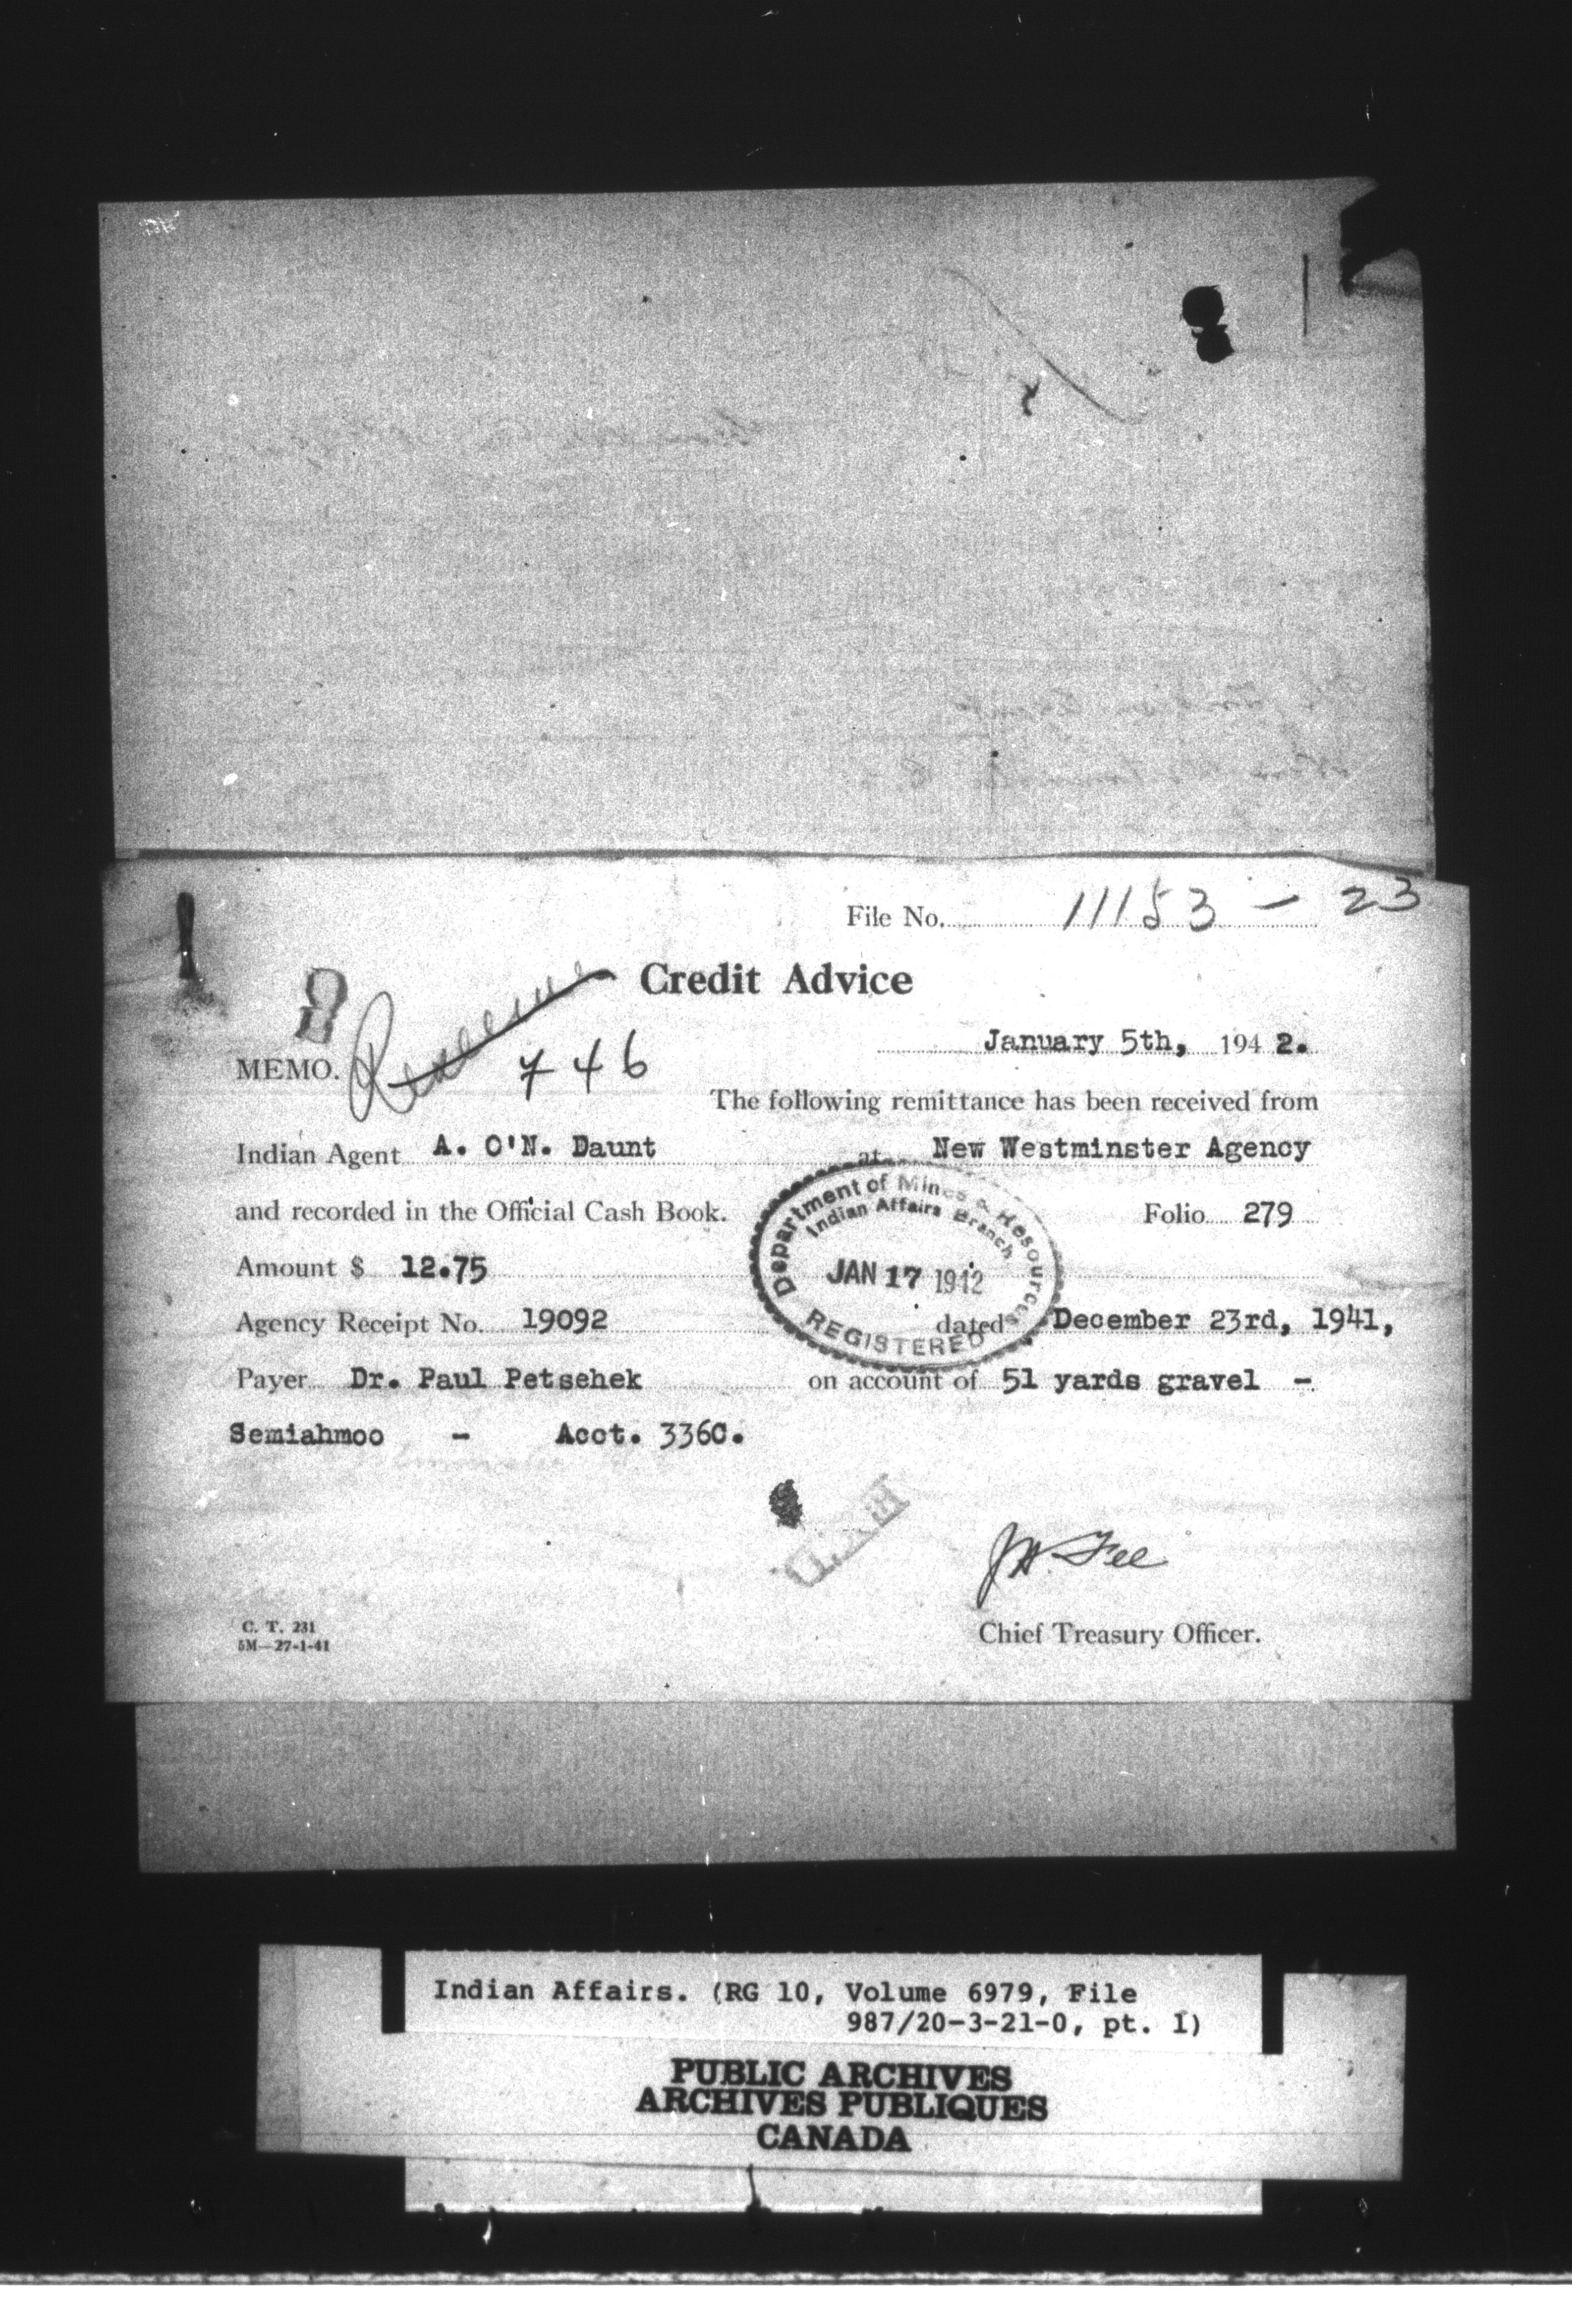 File No. 11153 - 23
Credit Advice
January 5th, 1942.
MEMO.
746
The following remittance has been received from
Indian Agent A. O'N. Daunt at New Westminster Agency
and recorded in the Official Cash Book. Folio 279
Department of Mines & Resources
Indian Affairs Branch
JAN 17 1942
REGISTERED
Amount $ 12.75
Agency Receipt No. 19092 dated December 23rd, 1941,
Payer Dr. Paul Petschek on account of 51 yards gravel -
Semiahmoo - Acct. 3360.
J.H. Fee
Chief Treasury Officer.
C. T. 231
5M—27-1-41
Indian Affairs. (RG 10, Volume 6979, File
987/20-3-21-0, pt. 1)
PUBLIC ARCHIVES
ARCHIVES PUBLIQUES
CANADA